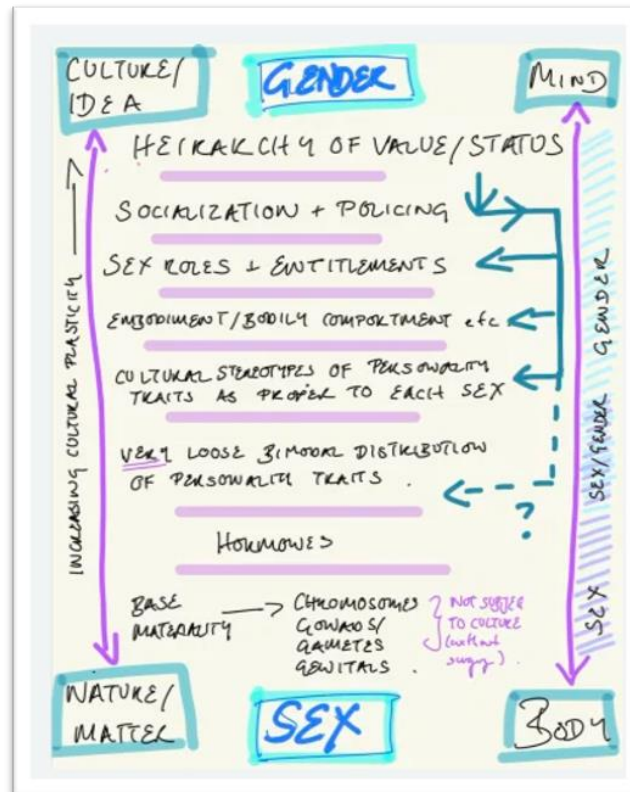 CULTURE/
IDEA
GENDER
MIND
HEIRARCHY OF VALUE/STATUS
SOCIALIZATION + POLICING
SEX ROLES + ENTITLEMENTS
EMBODIMENT/BODILY COMPORTMENT etc
CULTURAL STEREOTYPES OF PERSONALITY
TRAITS AS PROPER TO EACH SEX
VERY LOOSE BIMODAL DISTRIBUTION
OF PERSONALITY TRAITS .
?
HORMONES
BASE
MATERALITY
CHROMOSOMES
GONADS/
GAMETES
GENITALS .
NOT SUBJER
TO CULTURE
(without
surgy).
INCREASING CULTURAL PLASTICITY
GENDER
SEX/GENDER
SEX
NATURE/
MATTER
SEX
BODY